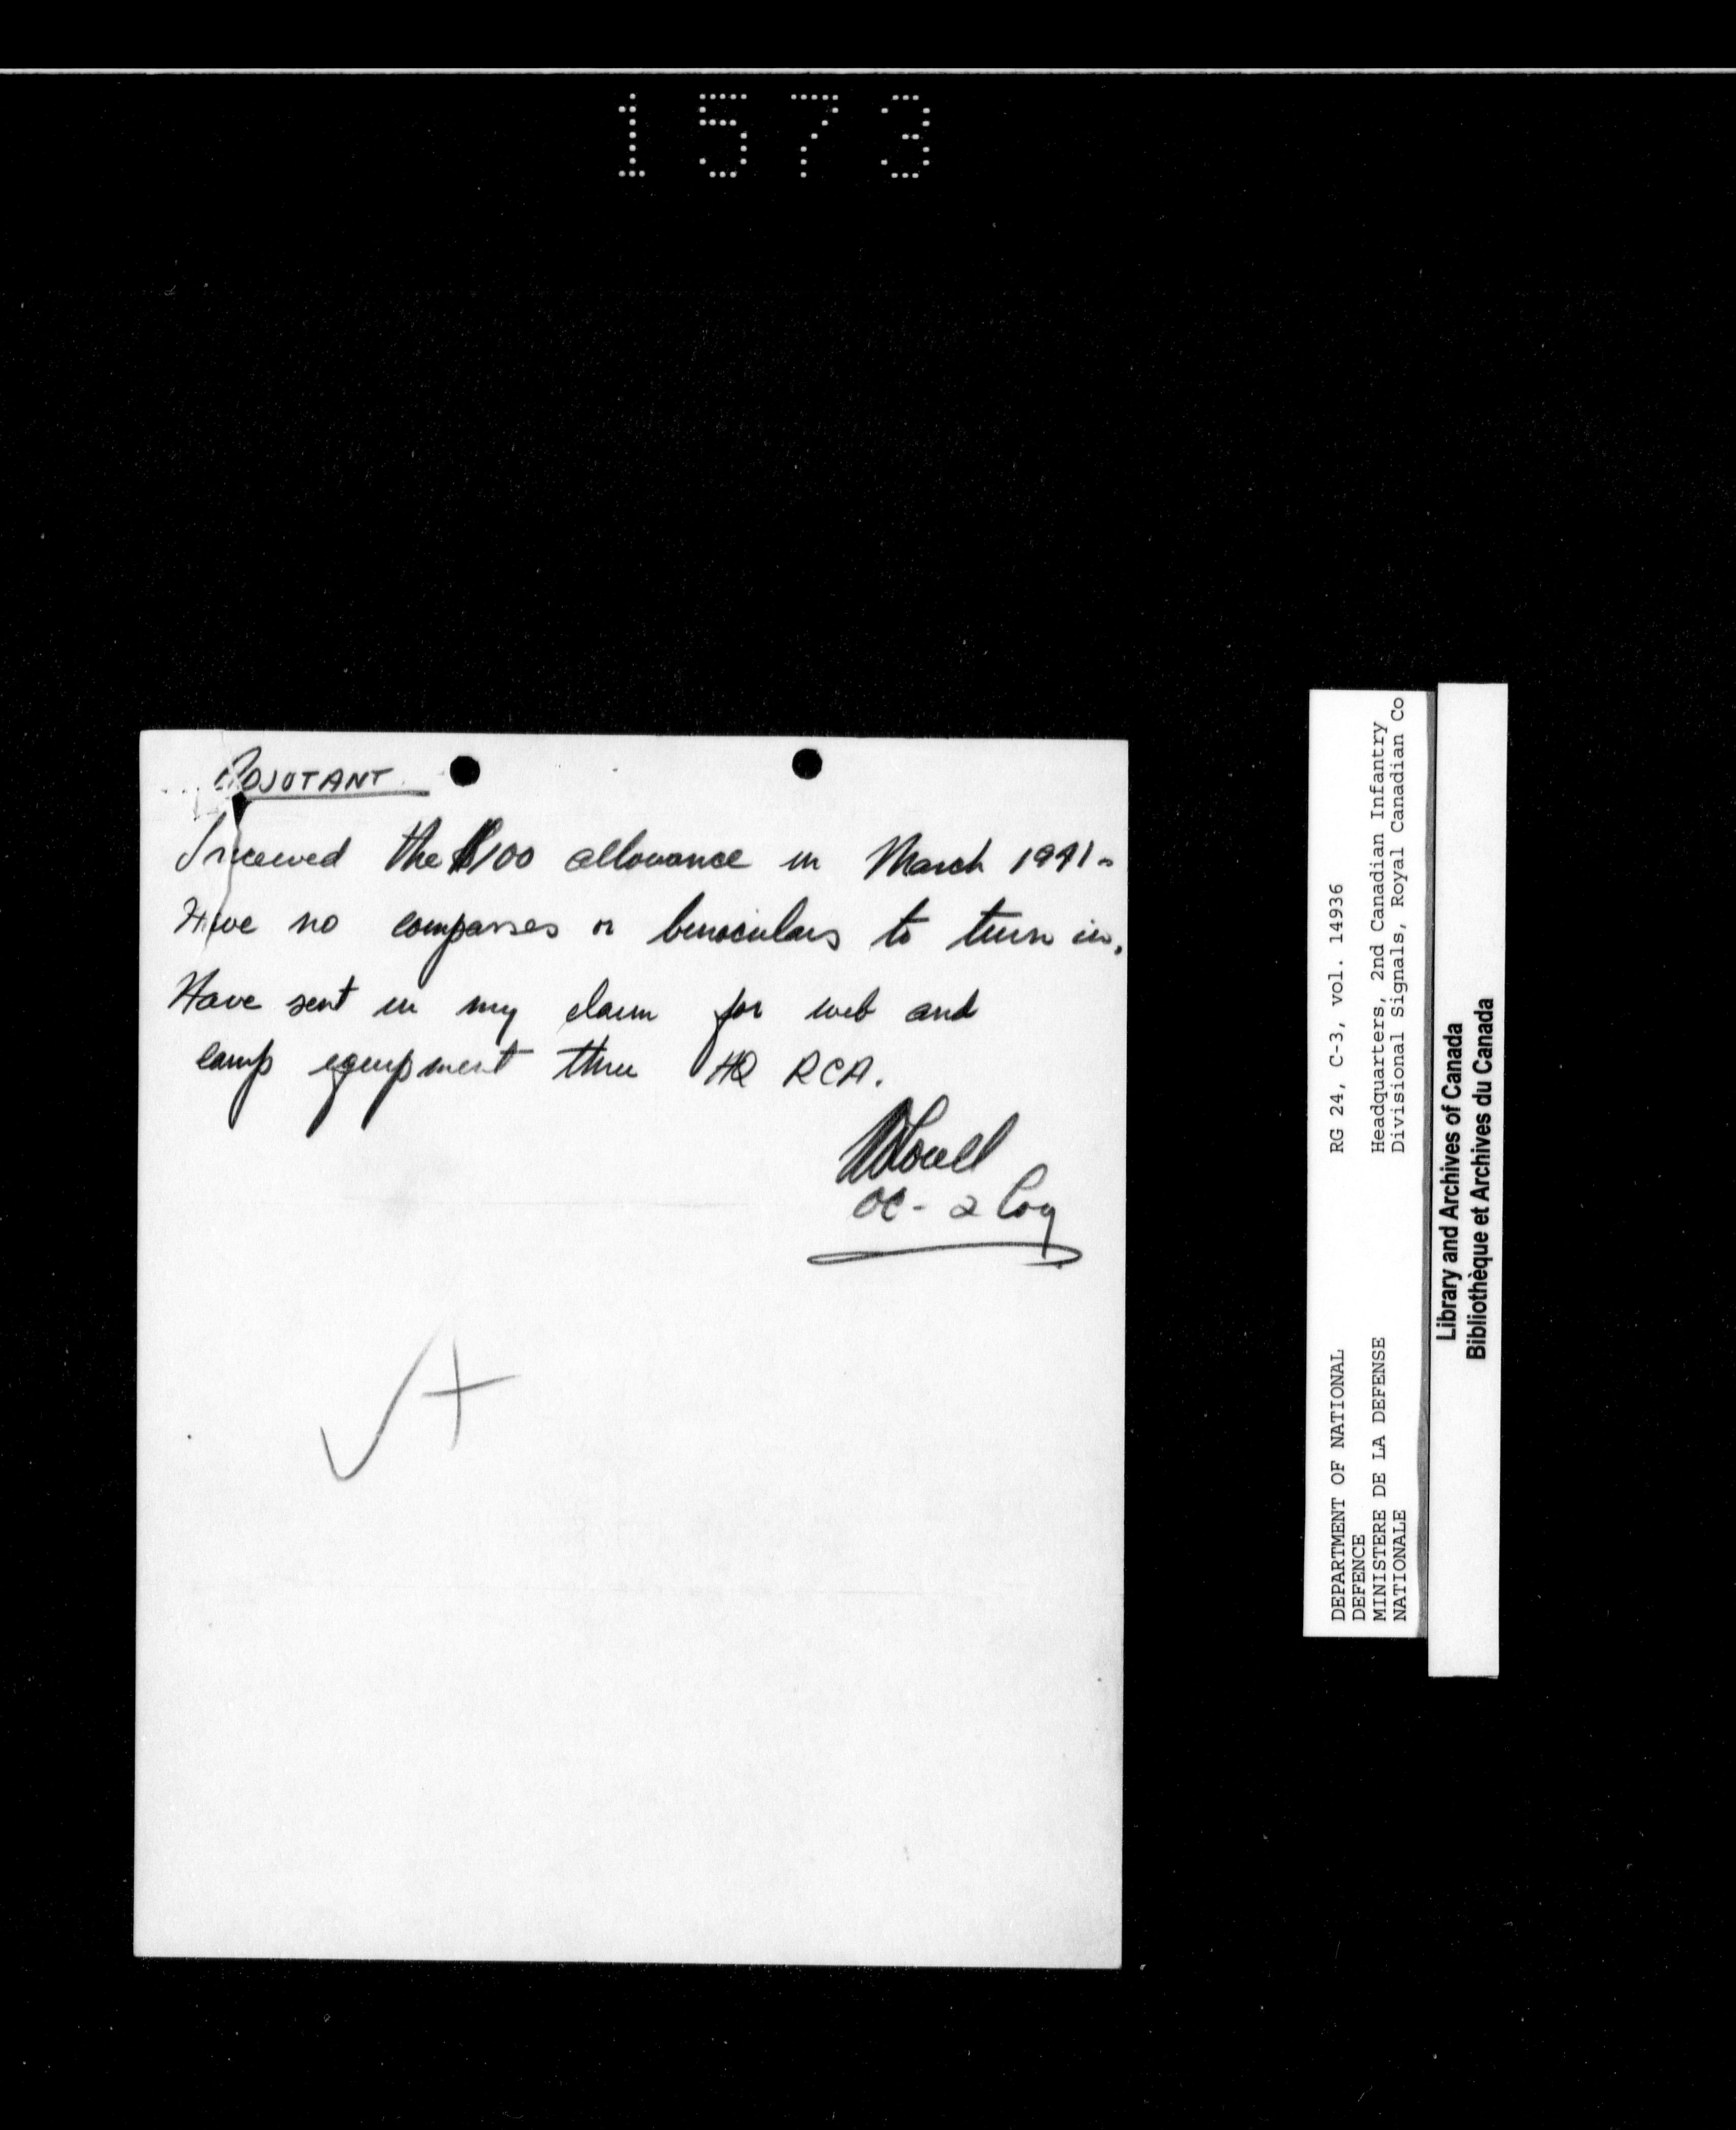 1573
ADJUTANT
I received the $100 allowance in March 1941-
Have no compasses or binoculars to turn in.
Have sent in my claim for web and
camp equipment thru HQ RCA.
OC - 2 Coy
RG 24, C-3, vol. 14936
Headquarters, 2nd Canadian Infantry
Divisional Signals, Royal Canadian Co
DEPARTMENT OF NATIONAL
DEFENCE
MINISTERE DE LA DEFENSE
NATIONALE
Library and Archives of Canada
Bibliothèque et Archives du Canada